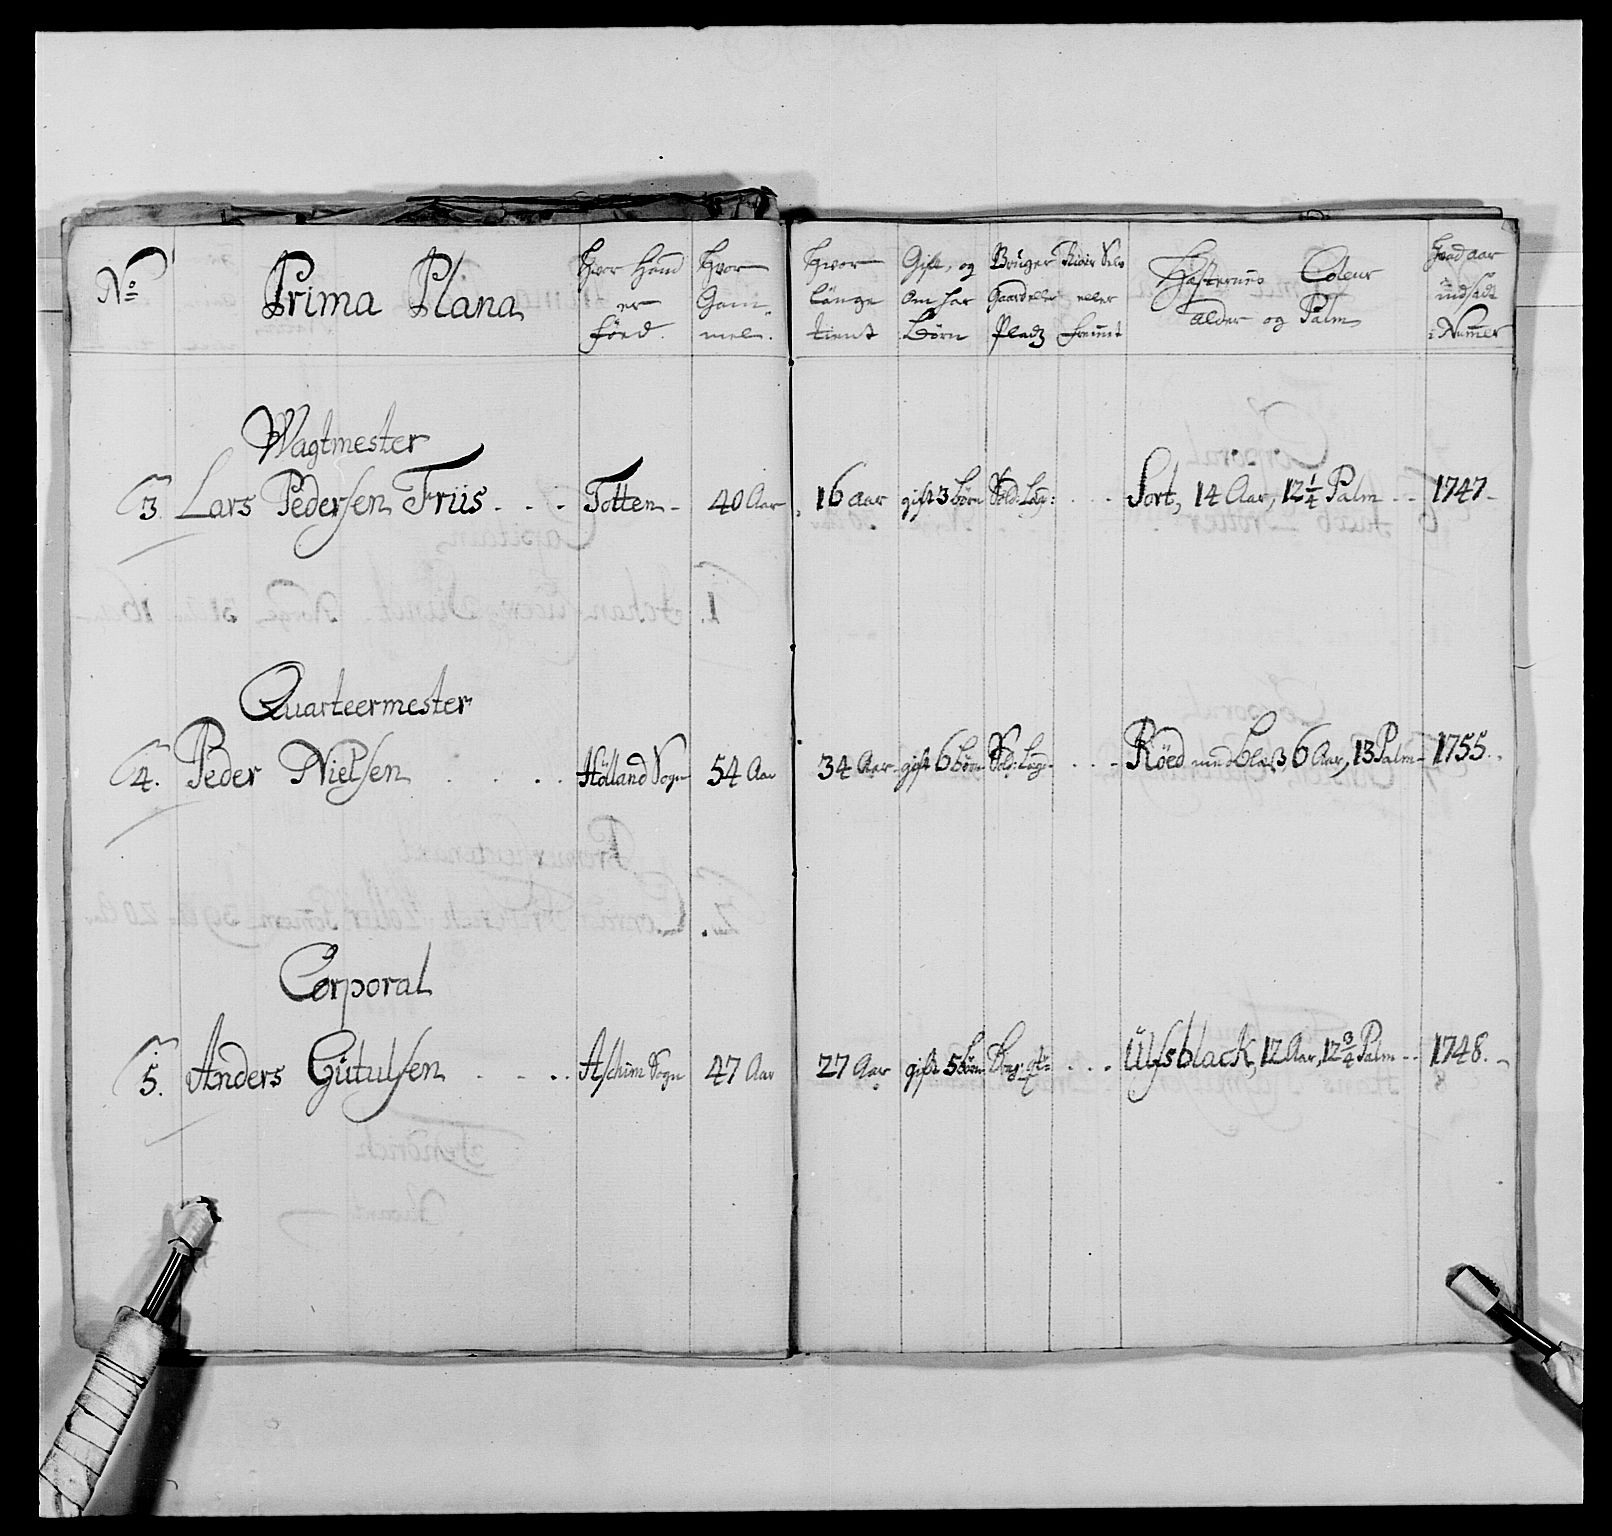 No
Prima Plana
Hvor Hand er föed.
Hvor Gam- mel.
Hvor länge tient
Gift, og Om har Börn
Bruger Gaard eller Pladz
Riður Selv eller fremet
Hästernes Coleur Alder og Palm
Hvad aar indsadt i Numer
Wagtmester
3. Lars Pedersen Friis. . . . Totten - 40 Aar 16 aar gift 3 börn Sold: Lag: . . . Sort, 14 Aar, 12 1/4 Palm - - 1747 -
Quarteermester
4. Peder Nielsen . . . . Hölland Sogn 54 Aar 34 Aar - gift 6 börn Sold: Lag: . . . Röed med bles, 6 Aar, 13 Palm - 1755. .
Corporal
5. Anders Gütulsen . . . . Aschim Sogn 47 Aar 27 Aar gift 5 börn . . . Ulfsblack, 12 Aar, 12 3/4 Palm - - 1748. -